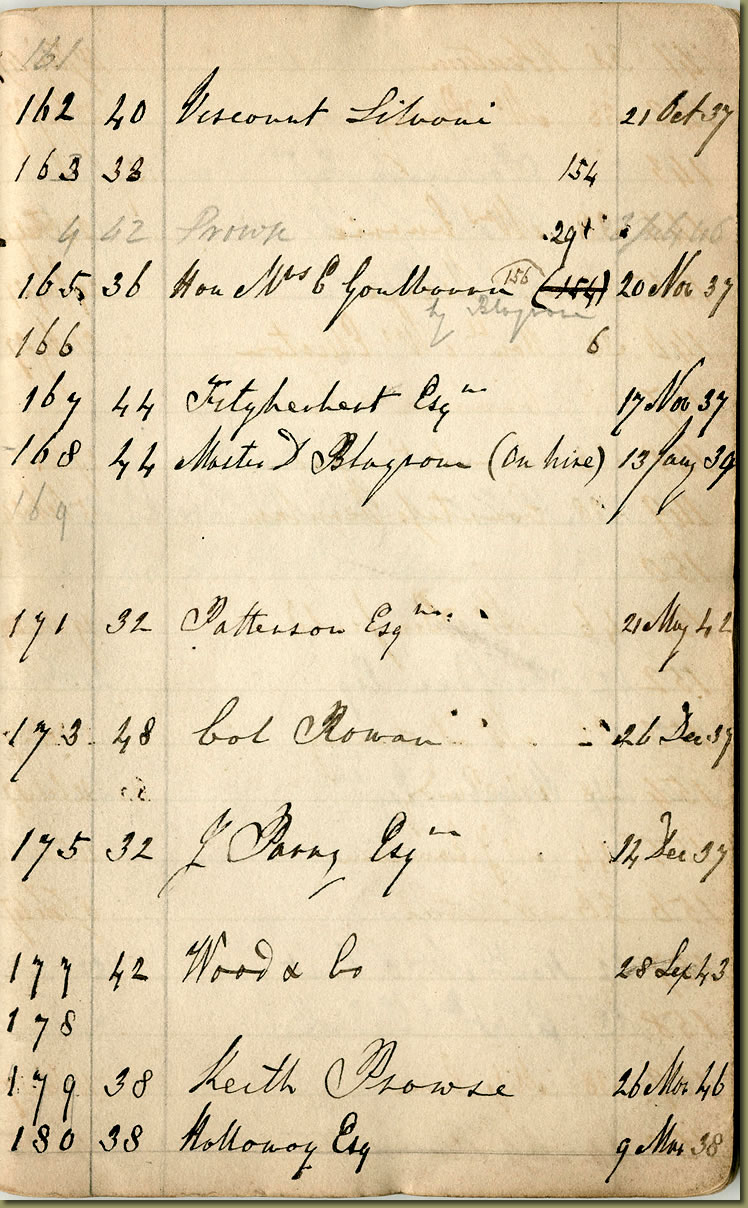 161
162 40 Viscount Silvoni 21 Oct 37
163 38 154
4 42 Prowse 29
165 36 Hon Mrs E Goulbourn 156 (154) 20 Nov 37
by Blagrove
166 6
167 44 Fitzherbert Esqre 17 Nov 37
168 44 Master D Blagrove (On hire) 13 Jany 39
169
171 32 Patterson Esqre 21 May 42
173 48 Col Rowan 26 Dec 37
175 32 Parry Esqre 12 Dec 37
177 42 Wood & Co 28 Sep 43
178
179 38 Keith Prowse 26 Mar 46
180 38 Holloway Esq 9 Mar 38